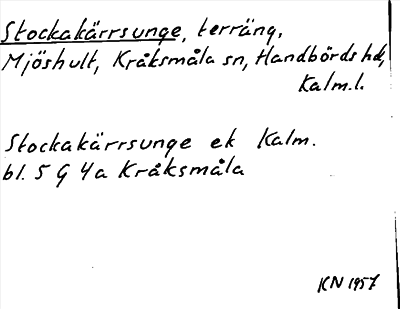 Stockakärrsunge, terräng,
Mjöshult, Kråksmåla sn, Handbörds hd,
Kalm.l.
Stockakärrsunge ek Kalm.
bl. 5 G 4a Kråksmåla
KN 1957